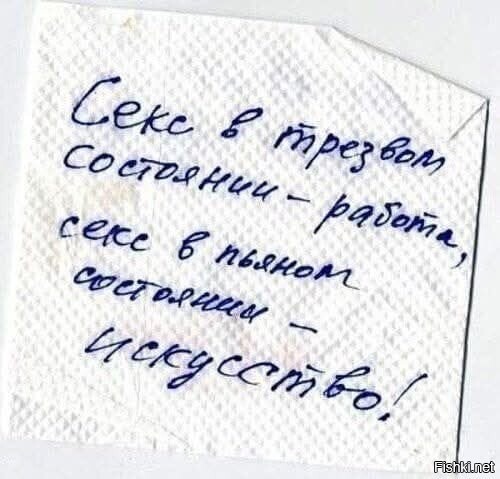 Секс в трезвом
состоянии - работа,
секс в пьяном
состоянии -
искусство!
Fishki.net